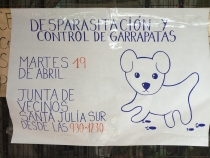 DESPARASITACIÓN Y
CONTROL DE GARRAPATAS
MARTES 19
DE ABRIL
JUNTA DE
VECINOS
SANTA JULIA SUR
DESDE LAS 930-1730